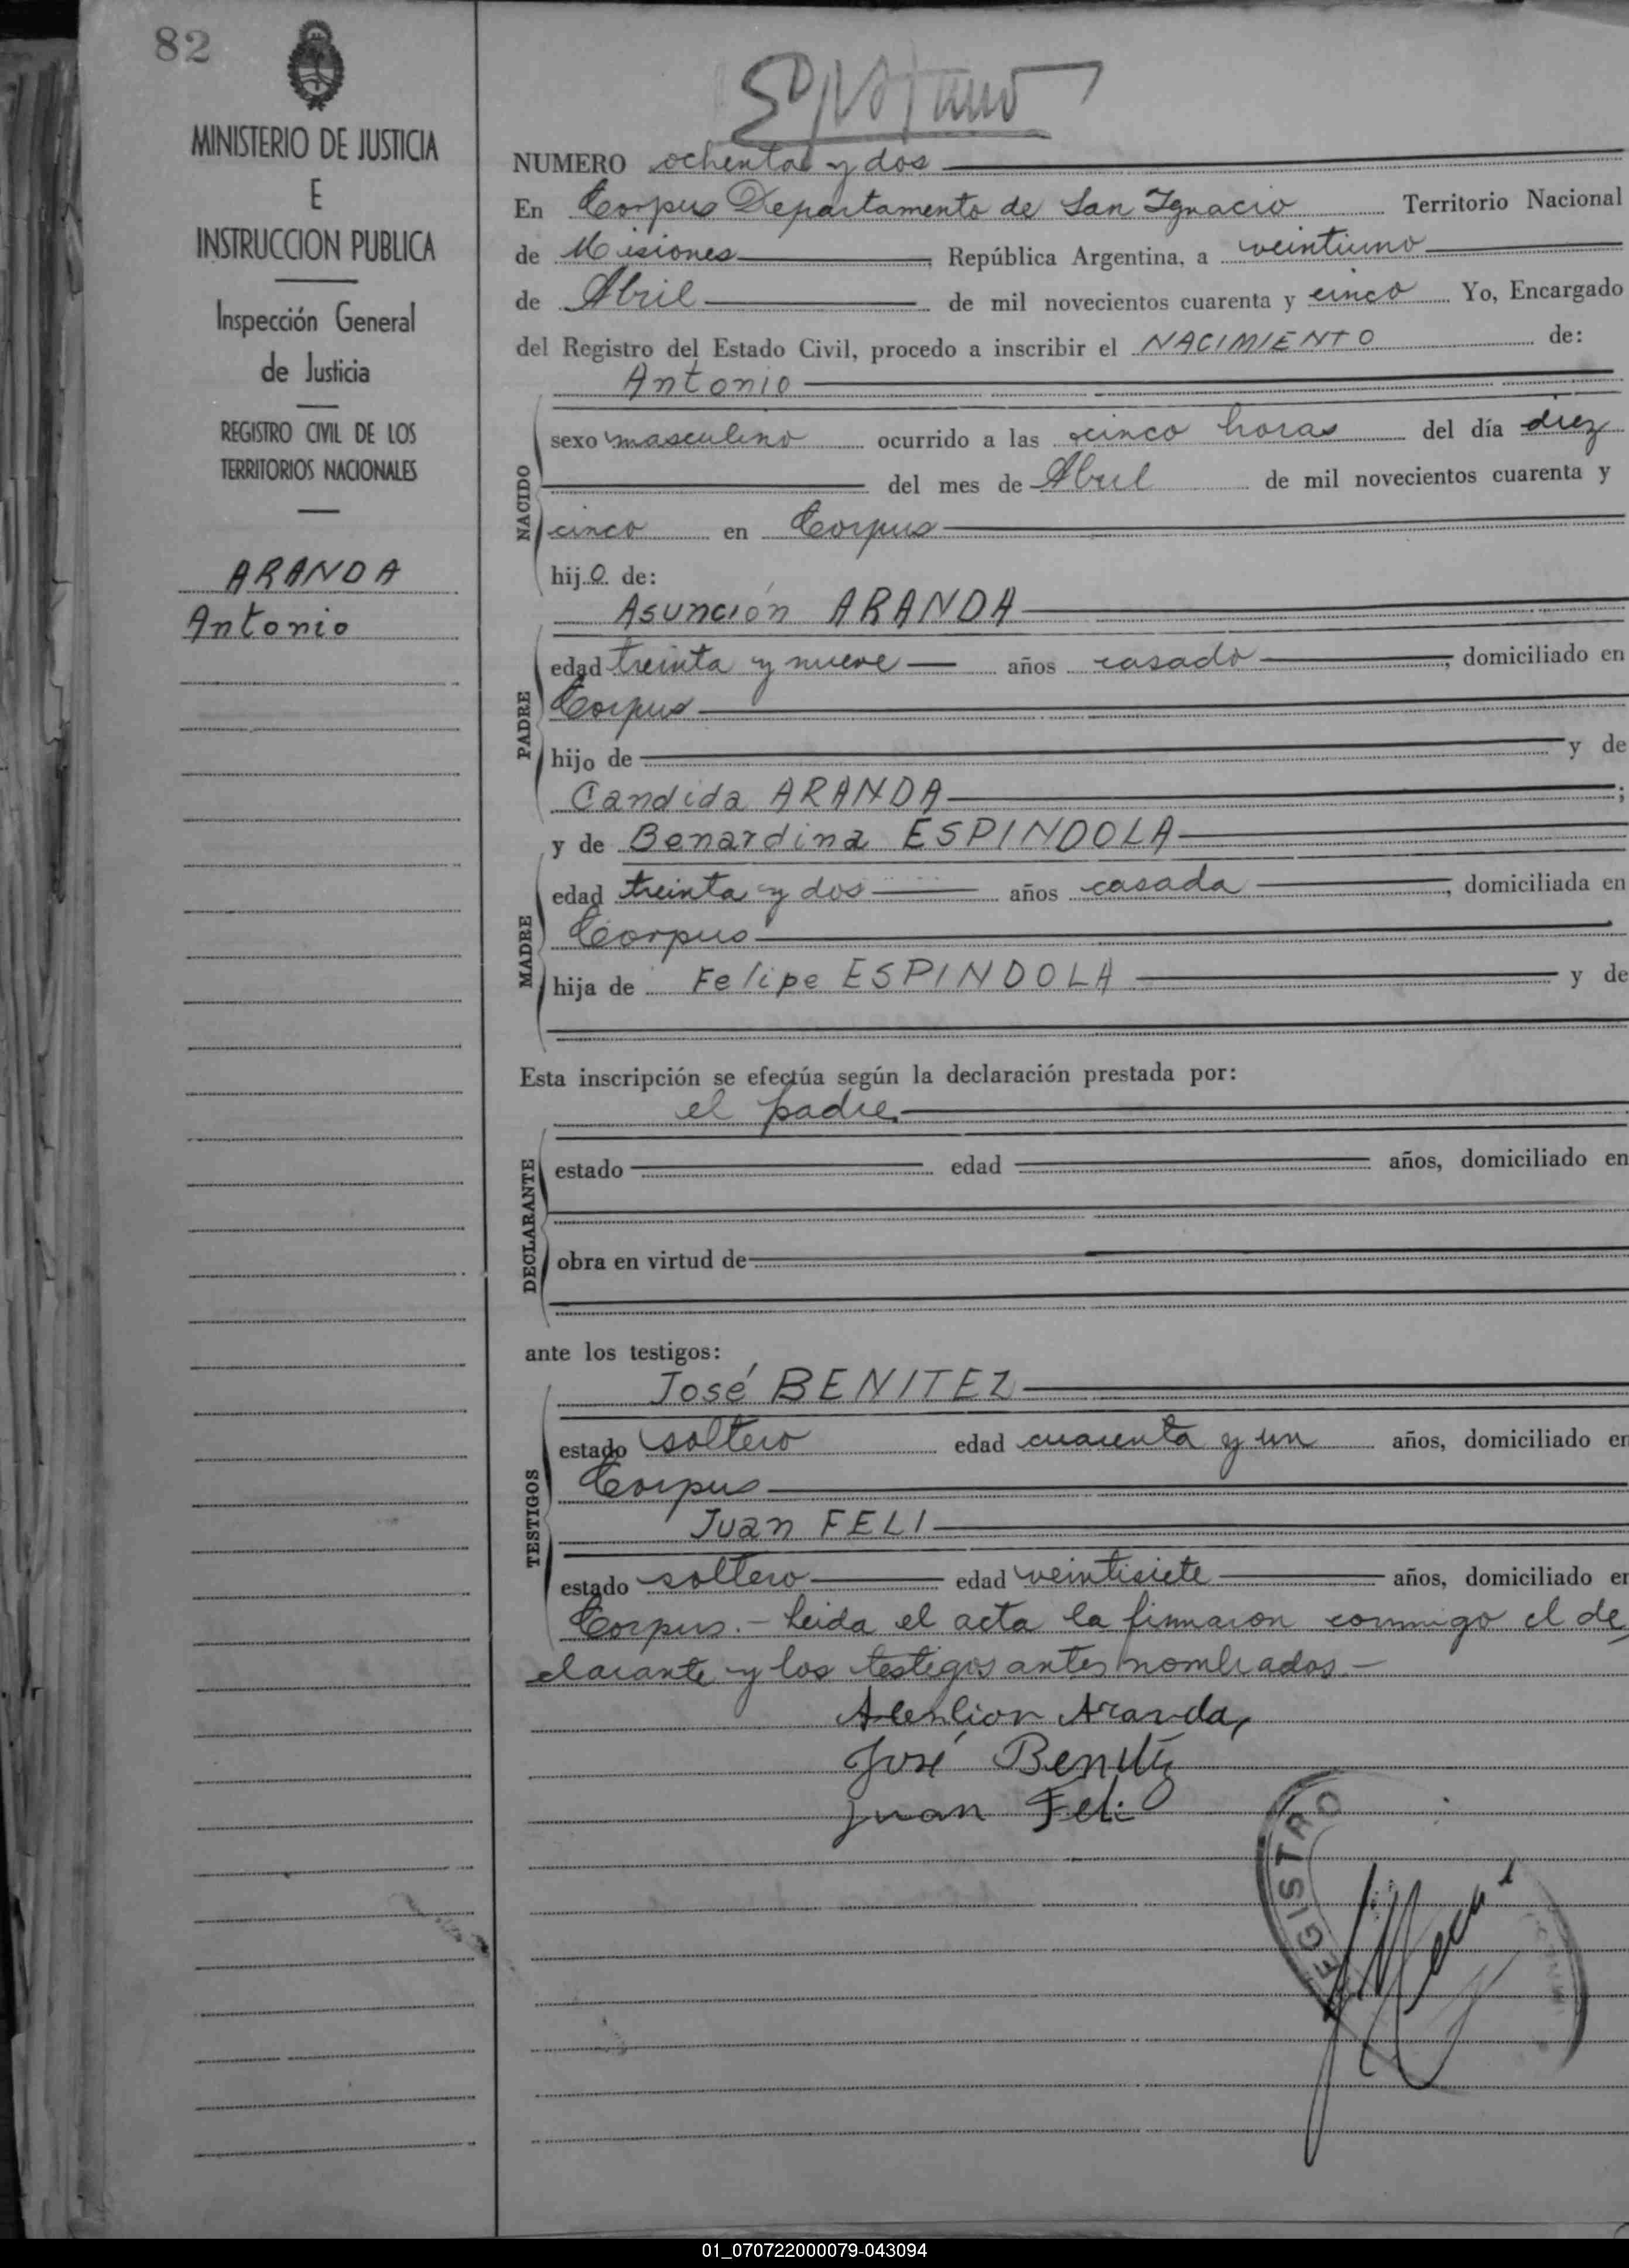 82
MINISTERIO DE JUSTICIA
E
INSTRUCCION PUBLICA
Inspección General
de Justicia
REGISTRO CIVIL DE LOS
TERRITORIOS NACIONALES
ARANDA
Antonio
NUMERO ochenta y dos
En Corpus Departamento de San Ignacio Territorio Nacional
de Misiones, República Argentina, a veintiuno
de Abril de mil novecientos cuarenta y cinco Yo, Encargado
del Registro del Estado Civil, procedo a inscribir el NACIMIENTO de:
Antonio
NACIDO
sexo masculino ocurrido a las cinco horas del día diez
del mes de Abril de mil novecientos cuarenta y
cinco en Corpus
hijo de:
Asunción ARANDA
PADRE
edad treinta y nueve años casado, domiciliado en
Corpus
hijo de y de
Candida ARANDA;
y de Benardina ESPINDOLA
MADRE
edad treinta y dos años casada, domiciliada en
Corpus
hija de Felipe ESPINDOLA y de
Esta inscripción se efectúa según la declaración prestada por:
el padre
DECLARANTE
estado edad años, domiciliado en
obra en virtud de
ante los testigos:
José BENITEZ
TESTIGOS
estado soltero edad cuarenta y un años, domiciliado en
Corpus
Juan FELI
estado soltero edad veintisiete años, domiciliado en
Corpus.- Leida el acta la firmaron conmigo el de
clarante y los testigos antes nombrados.-
Aranda
José Benitez
Juan Feli
REGISTRO
01_070722000079-043094